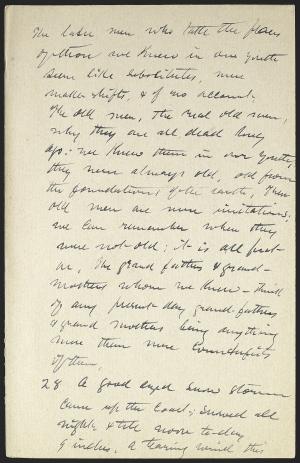 The later men who take the places
of those we knew in our youth
seem like substitutes, mere
make-shifts, & of no account.
The old men, the real old men,
why they are all dead long
ago: we knew them in our youth;
they were always old, old from
the foundations of the earth. These
old men are mere imitations;
we can remember when they
were not old: it is all put
on. The grand fathers & grand-
mothers whom we knew – think
of any present-day grand-fathers
& grand mothers being anything
more than mere counterfeits
of them.
28 A good aged snow storm
came up the coast; snowed all
night & till noon to-day
9 inches. A tearing wind this